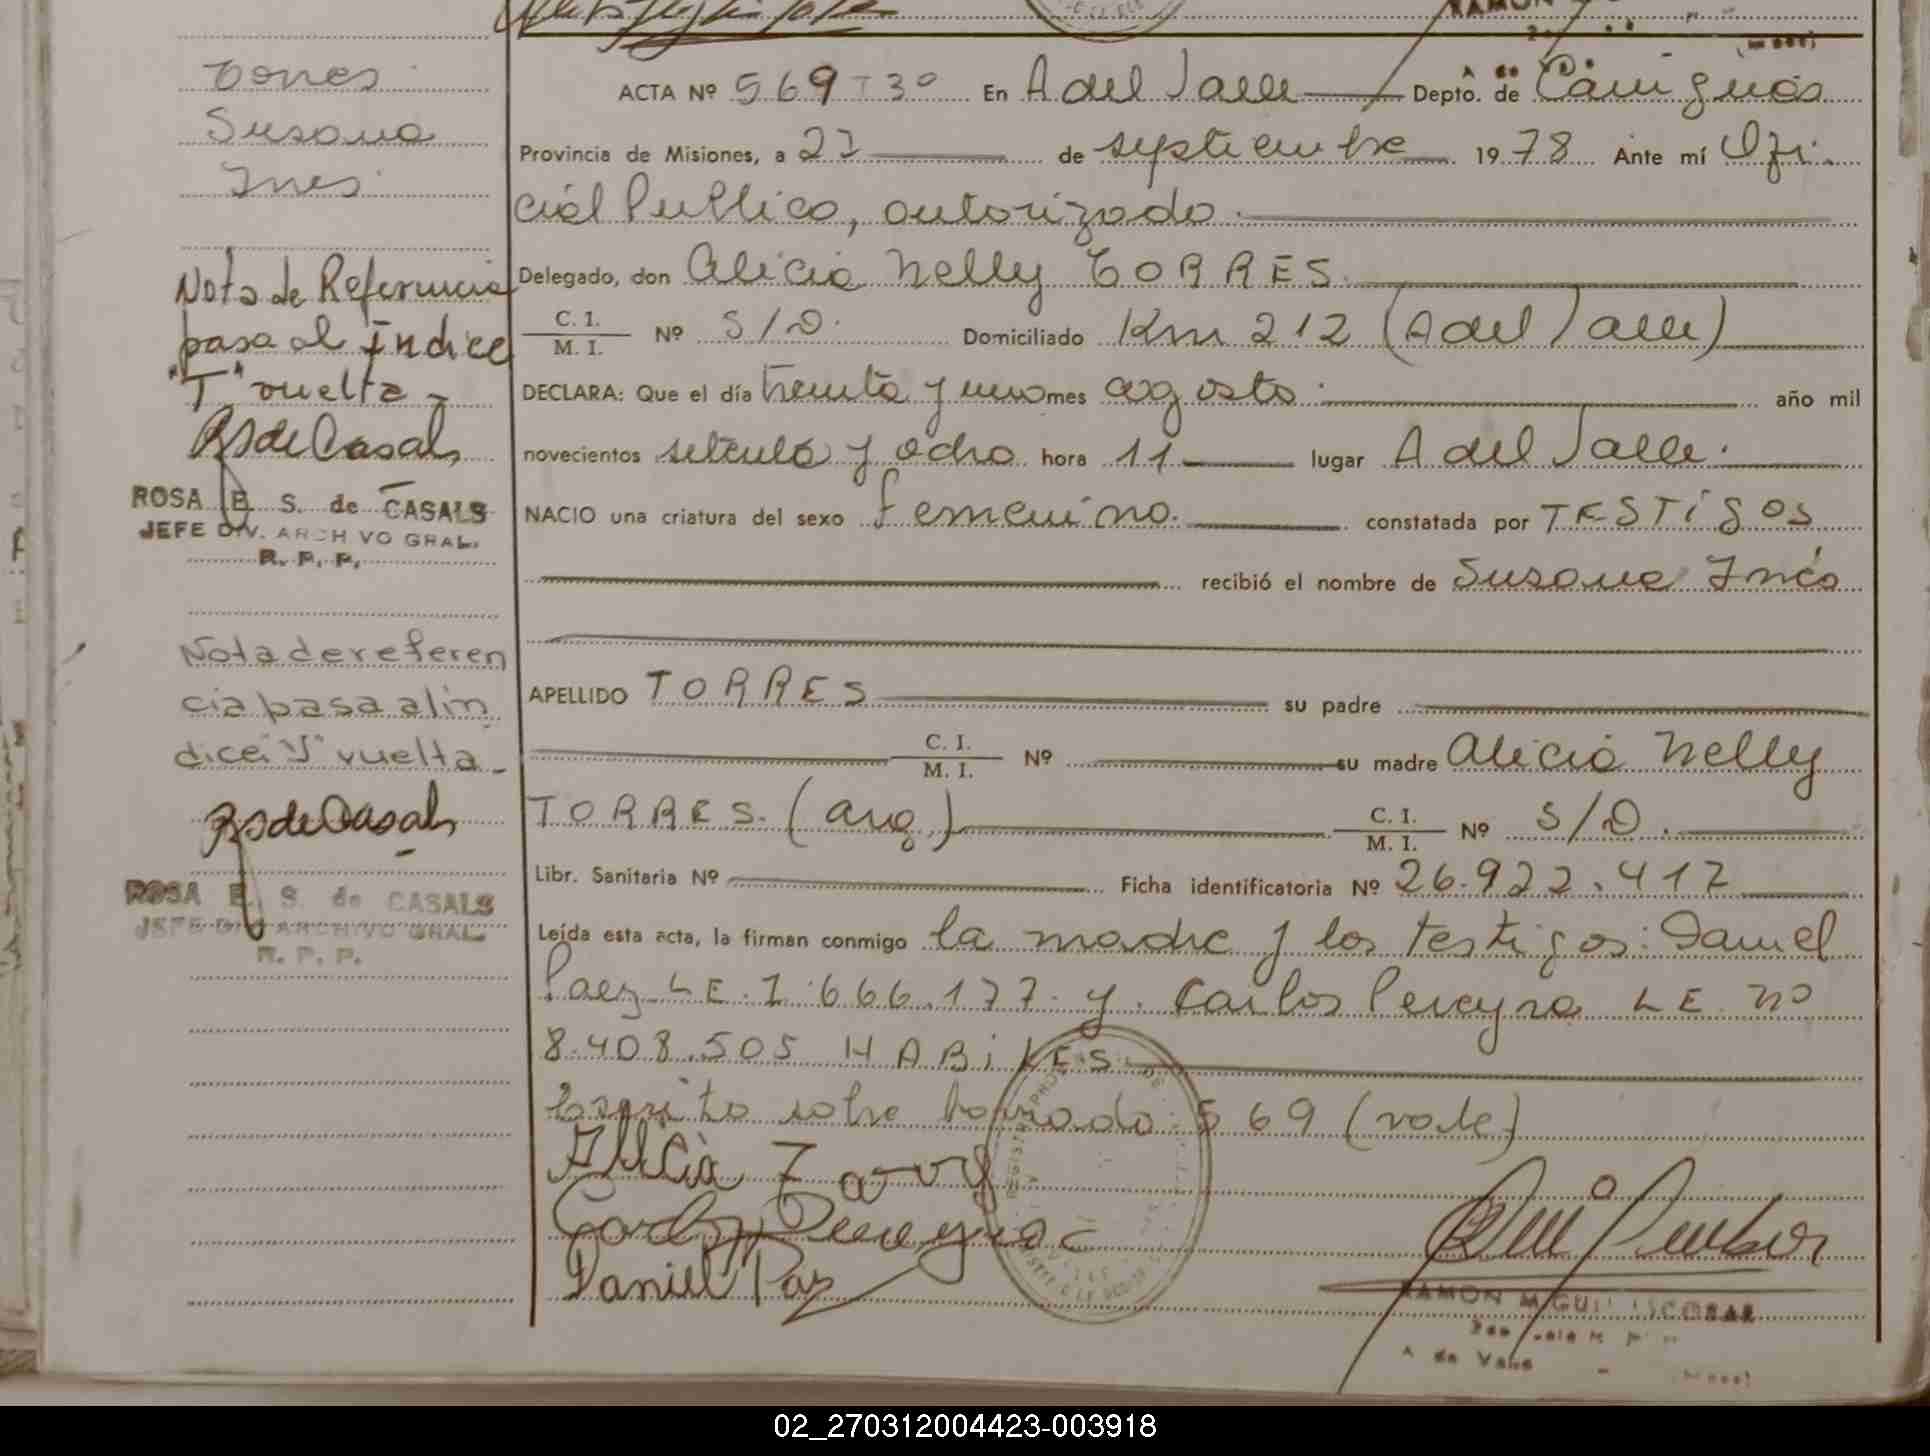 Torres
Susana
Ines
Nota de Referencia
pasa al Indice
"T" vuelta -
RSdeCasals
ROSA E. S. de CASALS
JEFE DIV. ARCHIVO GRAL.
R. P. P.
Nota de referen
cia pasa al in
dice "V" vuelta -
RSdeCasals
ROSA E. S. de CASALS
JEFE DIV ARCHIVO GRAL.
R. P. P.
RAMON
ACTA Nº 569 T 3º En A del Valle Depto. de Caingúas
Provincia de Misiones, a 27 de septiembre 1978 Ante mí Ofi-
cial Publico, autorizado.
Delegado, don Alicia Nelly TORRES.
C. I. / M. I. Nº S/D. Domiciliado Km 212 (A del Valle)
DECLARA: Que el día treinta y uno mes agosto. año mil
novecientos setenta y ocho hora 11 lugar A del Valle.
NACIO una criatura del sexo femenino. constatada por TESTIGOS
recibió el nombre de Susana Inés
APELLIDO TORRES su padre
C. I. / M. I. Nº su madre Alicia Nelly
TORRES. (arg) C. I. / M. I. Nº S/D.
Libr. Sanitaria Nº Ficha identificatoria Nº 26.922.417
Leída esta acta, la firman conmigo la madre y los testigos: Daniel
Paez LE. 1.666.177. y. Carlos Pereyra LE Nº
8.408.505 HABILES
Escrito sobre borrado: 569 (vale)
Alicia
Carlos Pereyra
Daniel Paz
RAMON MIGUEL ESCOBAR
A de Valle
02_270312004423-003918